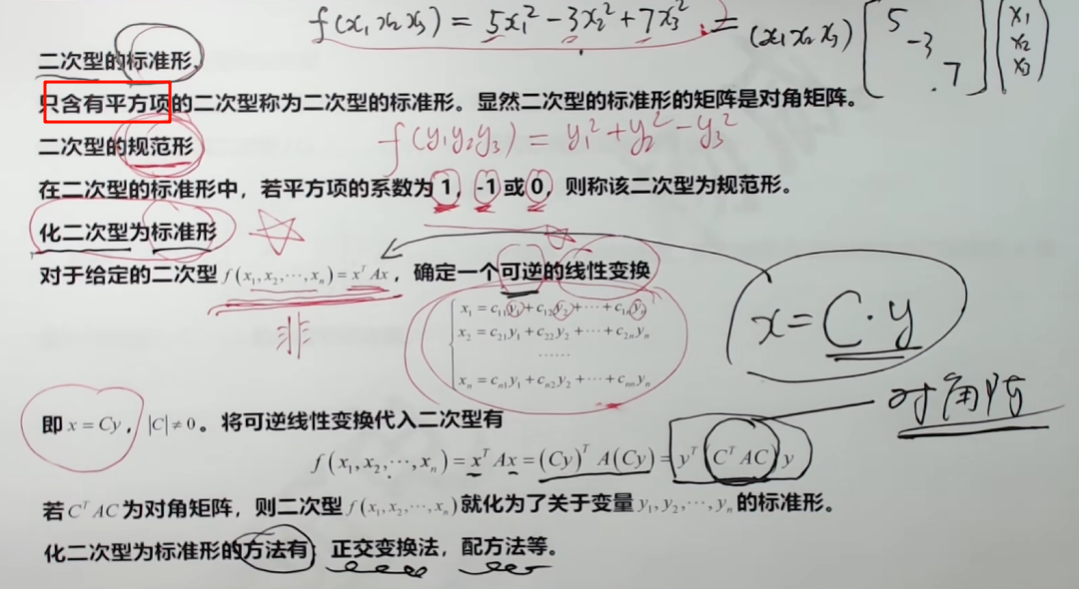 f(x₁ x₂ x₃) = 5x₁² - 3x₂² + 7x₃² = (x₁ x₂ x₃) [5 -3 7] (x₁ x₂ x₃)
二次型的标准形
只含有平方项的二次型称为二次型的标准形。显然二次型的标准形的矩阵是对角矩阵。
二次型的规范形
f(y₁ y₂ y₃) = y₁² + y₂² - y₃²
在二次型的标准形中，若平方项的系数为 1，-1 或 0，则称该二次型为规范形。
化二次型为标准形
对于给定的二次型 f(x₁,x₂,⋯,xₙ)=xᵀAx，确定一个可逆的线性变换
非
x₁ = c₁₁y₁ + c₁₂y₂ + ⋯ + c₁ₙyₙ
x₂ = c₂₁y₁ + c₂₂y₂ + ⋯ + c₂ₙyₙ
⋯⋯
xₙ = cₙ₁y₁ + cₙ₂y₂ + ⋯ + cₙₙyₙ
x = C·y
对角阵
即 x = Cy，|C| ≠ 0。将可逆线性变换代入二次型有
f(x₁,x₂,⋯,xₙ) = xᵀAx = (Cy)ᵀA(Cy) = yᵀ(CᵀAC)y
若 CᵀAC 为对角矩阵，则二次型 f(x₁,x₂,⋯,xₙ) 就化为了关于变量 y₁,y₂,⋯,yₙ 的标准形。
化二次型为标准形的方法有：正交变换法，配方法等。